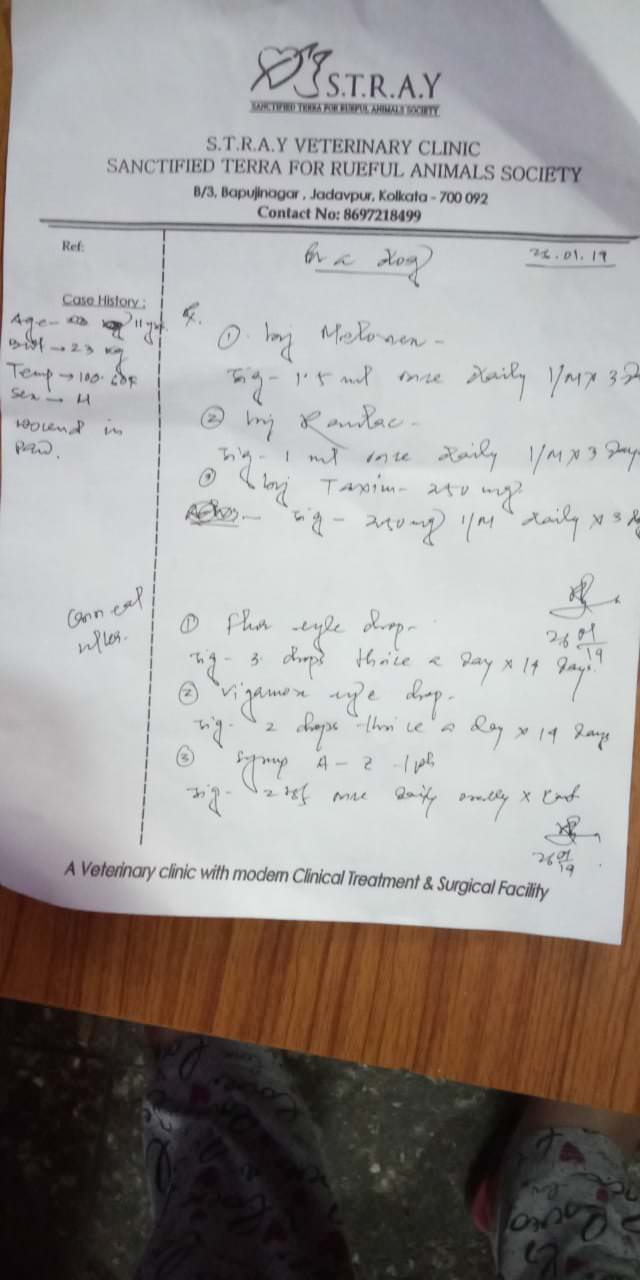 S.T.R.A.Y
SANCTIFIED TERRA FOR RUEFUL ANIMALS SOCIETY
S.T.R.A.Y VETERINARY CLINIC
SANCTIFIED TERRA FOR RUEFUL ANIMALS SOCIETY
B/3, Bapujinagar, Jadavpur, Kolkata - 700 092
Contact No: 8697218499
Ref:
for a dog
26.01.19
Case History :
Age - 11 yrs
→ 23 kg
Temp → 100.
Sex → M
wound in
paw.
① Inj
Sig - 1.5 ml once daily I/M x 3
② Inj Rantac -
Sig - 1 ml once daily I/M x 3 days
③ Inj Taxim - 250 mg
Sig - 250 mg I/M daily x 3
26/01/19
Corneal
① eye drop -
Sig - 3 drops thrice a day x 14 days
② Vigamox eye drop -
Sig - 2 drops thrice a day x 14 days
③ Syrup A - Z - 1 ph
Sig - 2 once daily orally x
26/01/19
A Veterinary clinic with modern Clinical Treatment & Surgical Facility